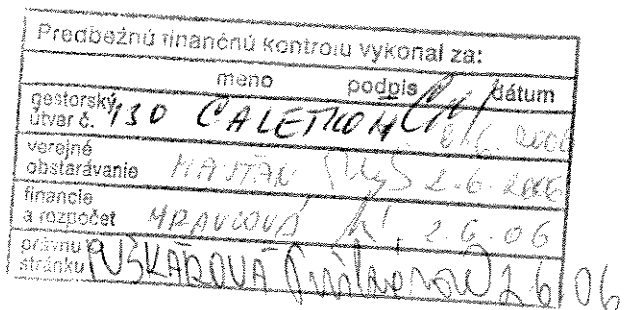 Predbežnú finančnú kontrolu vykonal za:
meno podpis dátum
gestorský
útvar č. 130
verejné
obstarávanie HAJTÁN 2.6.2006
financie
a rozpočet MRAVCOVÁ 2.6.06
právnu
stránku PUŠKÁROVÁ 2606